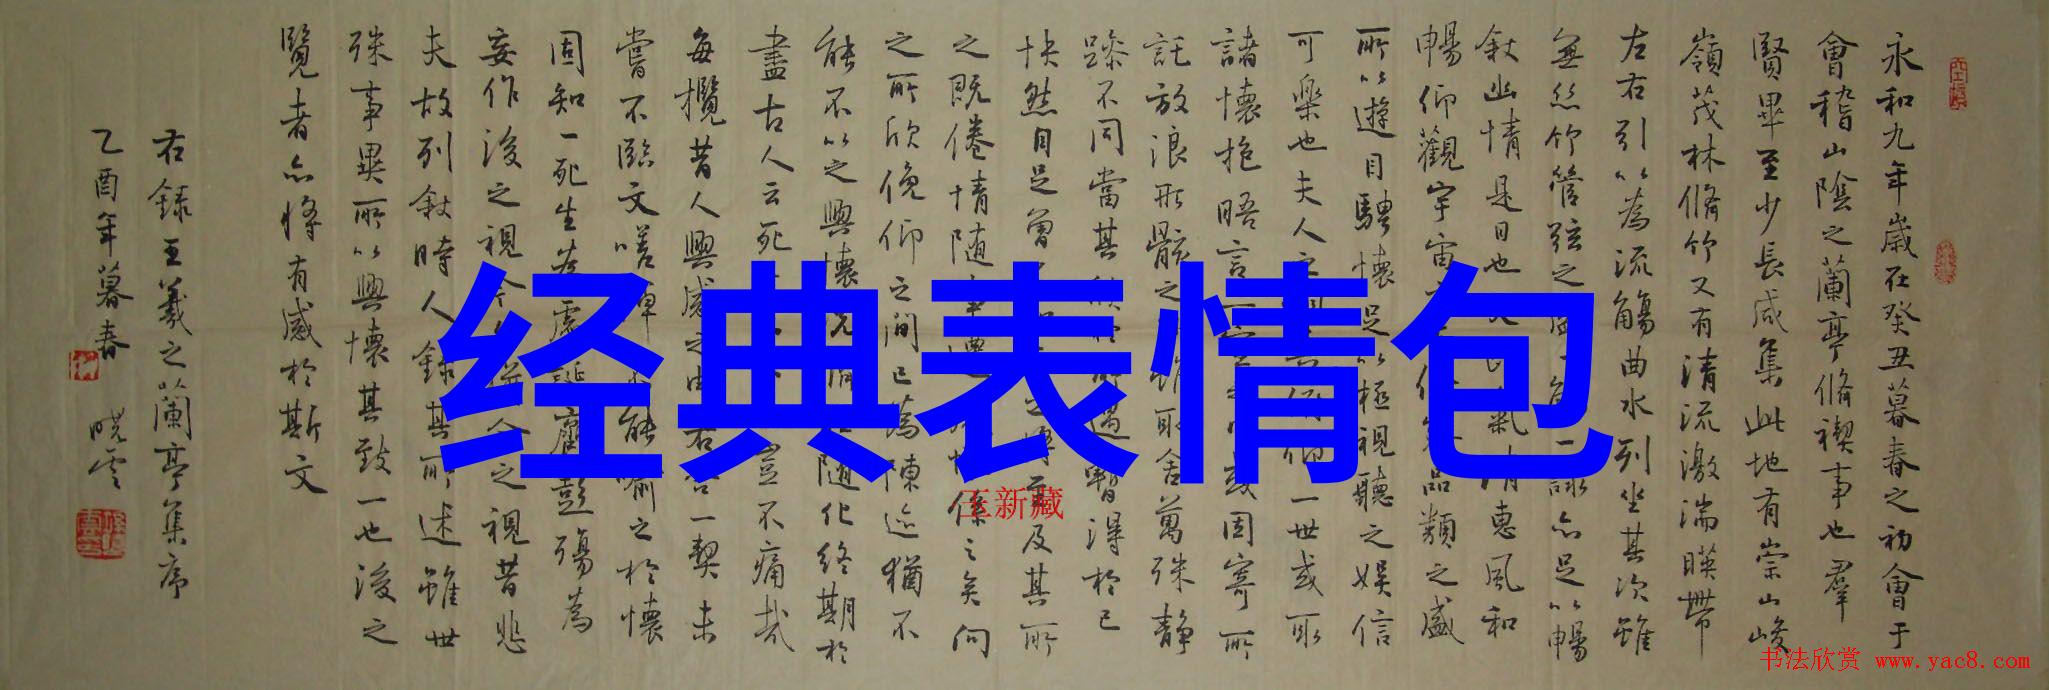 永和九年歲在癸丑暮春之初會于
會稽山陰之蘭亭脩禊事也羣
賢畢至少長咸集此地有崇山峻
嶺茂林脩竹又有清流激湍暎帶
左右引以為流觴曲水列坐其次雖
無絲竹管弦之盛一觴一詠亦足以暢
敘幽情是日也天氣清惠風和
暢仰觀宇宙品類之盛
所以遊目騁懷足以極視聽之娛信
可樂也夫人之俯仰一世或取
諸懷抱晤言一室或因寄所
託放浪形骸之雖取舍萬殊静
躁不同當其欣於所遇暫得於己
快然自足曾不至及其所
之既倦情随事遷係之矣向
之所欣俛仰之間已為陳迹猶不
能不以之興懷況随化終期於
盡古人云死豈不痛哉
每攬昔人興感之由若合一契未
嘗不臨文嗟悼不能喻之於懷
固知一死生為虛誕齊彭殤為
妄作後之視今之視昔悲
夫故列敘時人錄其所述雖世
殊事異所以興懷其致一也後之
覽者亦將有感於斯文
右錄王羲之蘭亭集序
乙酉年暮春 曉雲
经典表情包
王新藏
书法欣赏 www.yac8.com